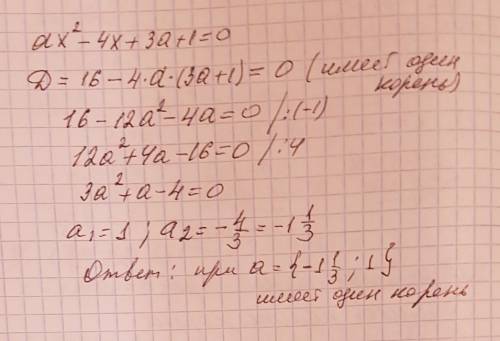 ax² - 4x + 3a + 1 = 0
D = 16 - 4·a·(3a+1) = 0 (имеет один корень)
16 - 12a² - 4a = 0 /:(-1)
12a² + 4a - 16 = 0 /:4
3a² + a - 4 = 0
a₁ = 1 ; a₂ = -4/3 = -1 1/3
Ответ: при a = {-1 1/3 ; 1}
имеет один корень